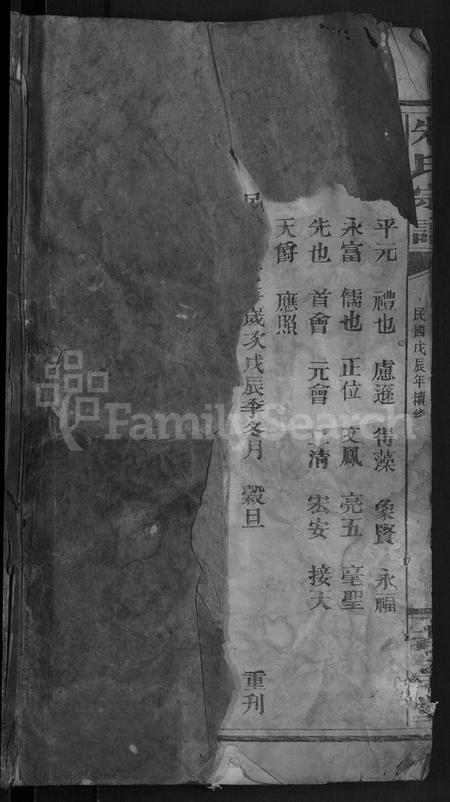 朱氏宗譜
民國戊辰年續修
平元 禮也 慮遜 得藻 象賢 永福
永富 儒也 正位 文鳳 亮五 毫聖
先也 首會 元會 清 宏安 接天
天爵 應照
歲次戊辰季冬月 穀旦 重刊
FamilySearch